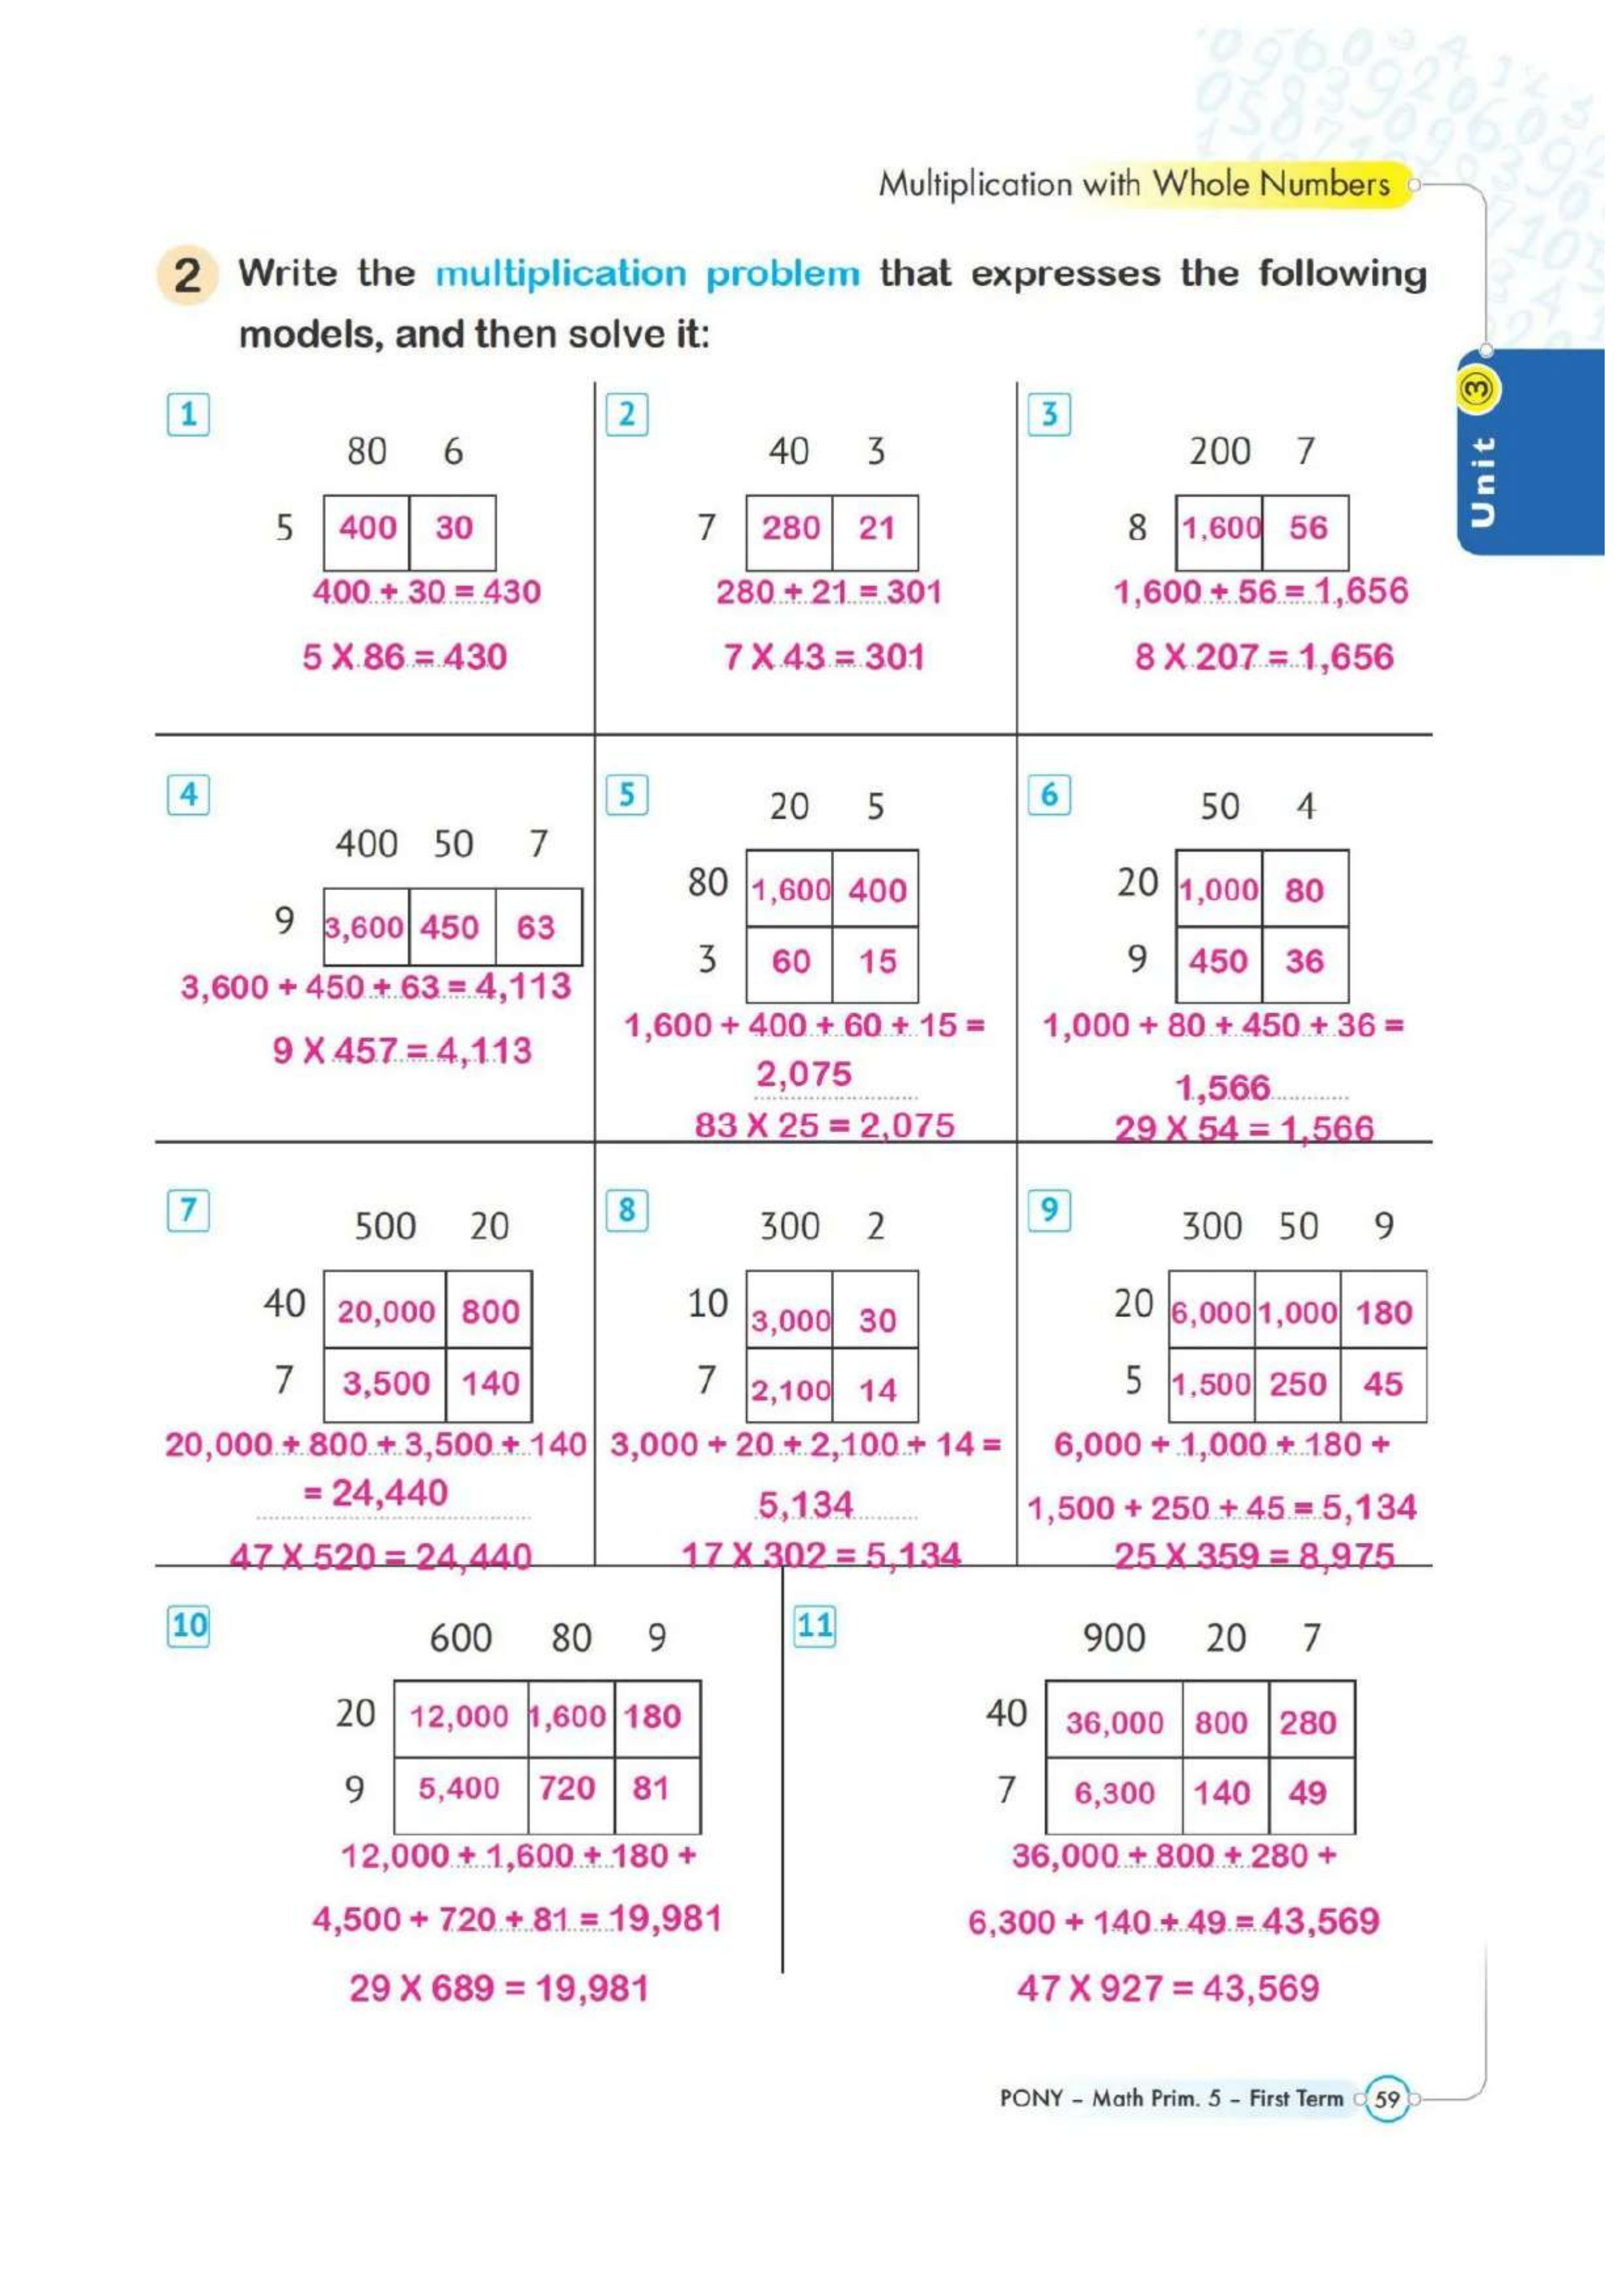 Multiplication with Whole Numbers
2 Write the multiplication problem that expresses the following
models, and then solve it:
Unit 3
1
80 6
5 400 30
400 + 30 = 430
5 X 86 = 430
2
40 3
7 280 21
280 + 21 = 301
7 X 43 = 301
3
200 7
8 1,600 56
1,600 + 56 = 1,656
8 X 207 = 1,656
4
400 50 7
9 3,600 450 63
3,600 + 450 + 63 = 4,113
9 X 457 = 4,113
5
20 5
80 1,600 400
3 60 15
1,600 + 400 + 60 + 15 =
2,075
83 X 25 = 2,075
6
50 4
20 1,000 80
9 450 36
1,000 + 80 + 450 + 36 =
1,566
29 X 54 = 1,566
7
500 20
40 20,000 800
7 3,500 140
20,000 + 800 + 3,500 + 140
= 24,440
47 X 520 = 24,440
8
300 2
10 3,000 30
7 2,100 14
3,000 + 20 + 2,100 + 14 =
5,134
17 X 302 = 5,134
9
300 50 9
20 6,000 1,000 180
5 1,500 250 45
6,000 + 1,000 + 180 +
1,500 + 250 + 45 = 5,134
25 X 359 = 8,975
10
600 80 9
20 12,000 1,600 180
9 5,400 720 81
12,000 + 1,600 + 180 +
4,500 + 720 + 81 = 19,981
29 X 689 = 19,981
11
900 20 7
40 36,000 800 280
7 6,300 140 49
36,000 + 800 + 280 +
6,300 + 140 + 49 = 43,569
47 X 927 = 43,569
PONY - Math Prim. 5 - First Term 59